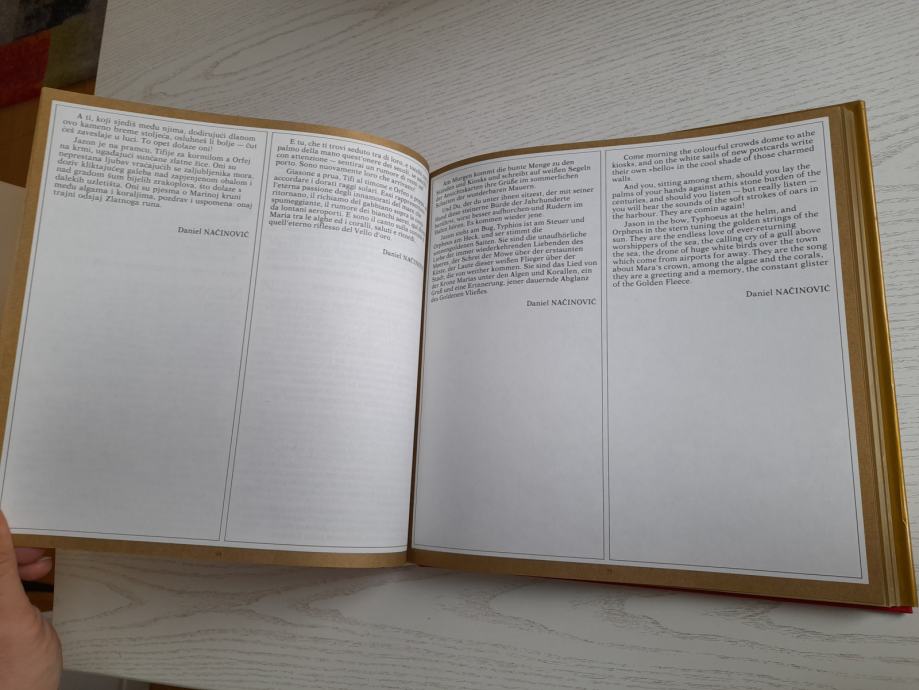 A ti, koji sjediš među njima, dodirujući dlanom
ovo kameno breme stoljeća, osluhneš li bolje — čut
ćeš zaveslaje u luci. To opet dolaze oni!
Jazon je na pramcu, Tifije za kormilom a Orfej
na krmi, ugađajući sunčane zlatne žice. Oni su
neprestana ljubav vraćajućih se zaljubljenika mora,
doziv kliktajućeg galeba nad zapjenjenom obalom i
nad gradom šum bijelih zrakoplova, što dolaze s
dalekih uzletišta. Oni su pjesma o Marinoj kruni
među algama i koraljima, pozdrav i uspomena: onaj
trajni odsjaj Zlatnoga runa.
Daniel NAČINOVIĆ
E tu, che ti trovi seduto tra di loro, e
palmo della mano quest'onere dei secoli
con attenzione — sentirai un rumore di remi nel
porto. Sono nuovamente loro che arrivano!
Giasone a prua, Tifi al timone e Orfeo a poppa
accordare i dorati raggi solari. Essi rappresentano
l'eterna passione degli innamorati del mare che
ritornano, il richiamo del gabbiano sopra la
spumeggiante, il rumore dei bianchi aerei
da lontani aeroporti. E sono il canto sulla corona
Maria tra le alghe ed i coralli, saluti e ricordi,
quell'eterno riflesso del Vello d'oro.
Daniel NAČINOVIĆ
Am Morgen kommt die bunte Menge zu den
Ständen und Kiosks und schreibt auf weißen Segeln
der Ansichtskarten ihre Grüße im sommerlichen
Schatten der wunderbaren Mauern.
Und Du, der du unter ihnen sitzest, der mit seiner
Hand diese steinerne Bürde der Jahrhunderte
berührt, wirst besser aufhorchen und Rudern im
Hafen hören. Es kommen wieder jene.
Jason steht am Bug, Typhios ist am Steuer und
Orpheus am Heck, und ser stimmt die
sonnengoldenen Saiten. Sie sind die unaufhörliche
Liebe der immer wiederkehrenden Liebenden des
Meeres, der Schrei der Möwe über der erstaunten
Küste, der Laute dieser weißen Flieger über der
Stadt, die von weither kommen. Sie sind das Lied von
der Krone Marias unter den Algen und Korallen, ein
Gruß und eine Erinnerung, jener dauernde Abglanz
des Goldenen Vließes.
Daniel NAČINOVIĆ
Come morning the colourful crowds dome to athe
kiosks, and on the white sails of new postcards write
their own »hello« in the cool shade of those charmed
walls.
And you, sitting among them, should you lay the
palms of your hands against athis stone burden of the
centuries, and should you listen — but really listen —
you will hear the sounds of the soft strokes of oars in
the harbour. They are comin again!
Jason in the bow, Typhoeus at the helm, and
Orpheus in the stern tuning the golden strings of the
sun. They are the endless love of ever-returning
worshippers of the sea, the calling cry of a gull above
the sea, the drone of huge white birds over the town
which come from airports for away. They are the song
about Mara's crown, among the algae and the corals,
they are a greeting and a memory, the constant glister
of the Golden Fleece.
Daniel NAČINOVIĆ